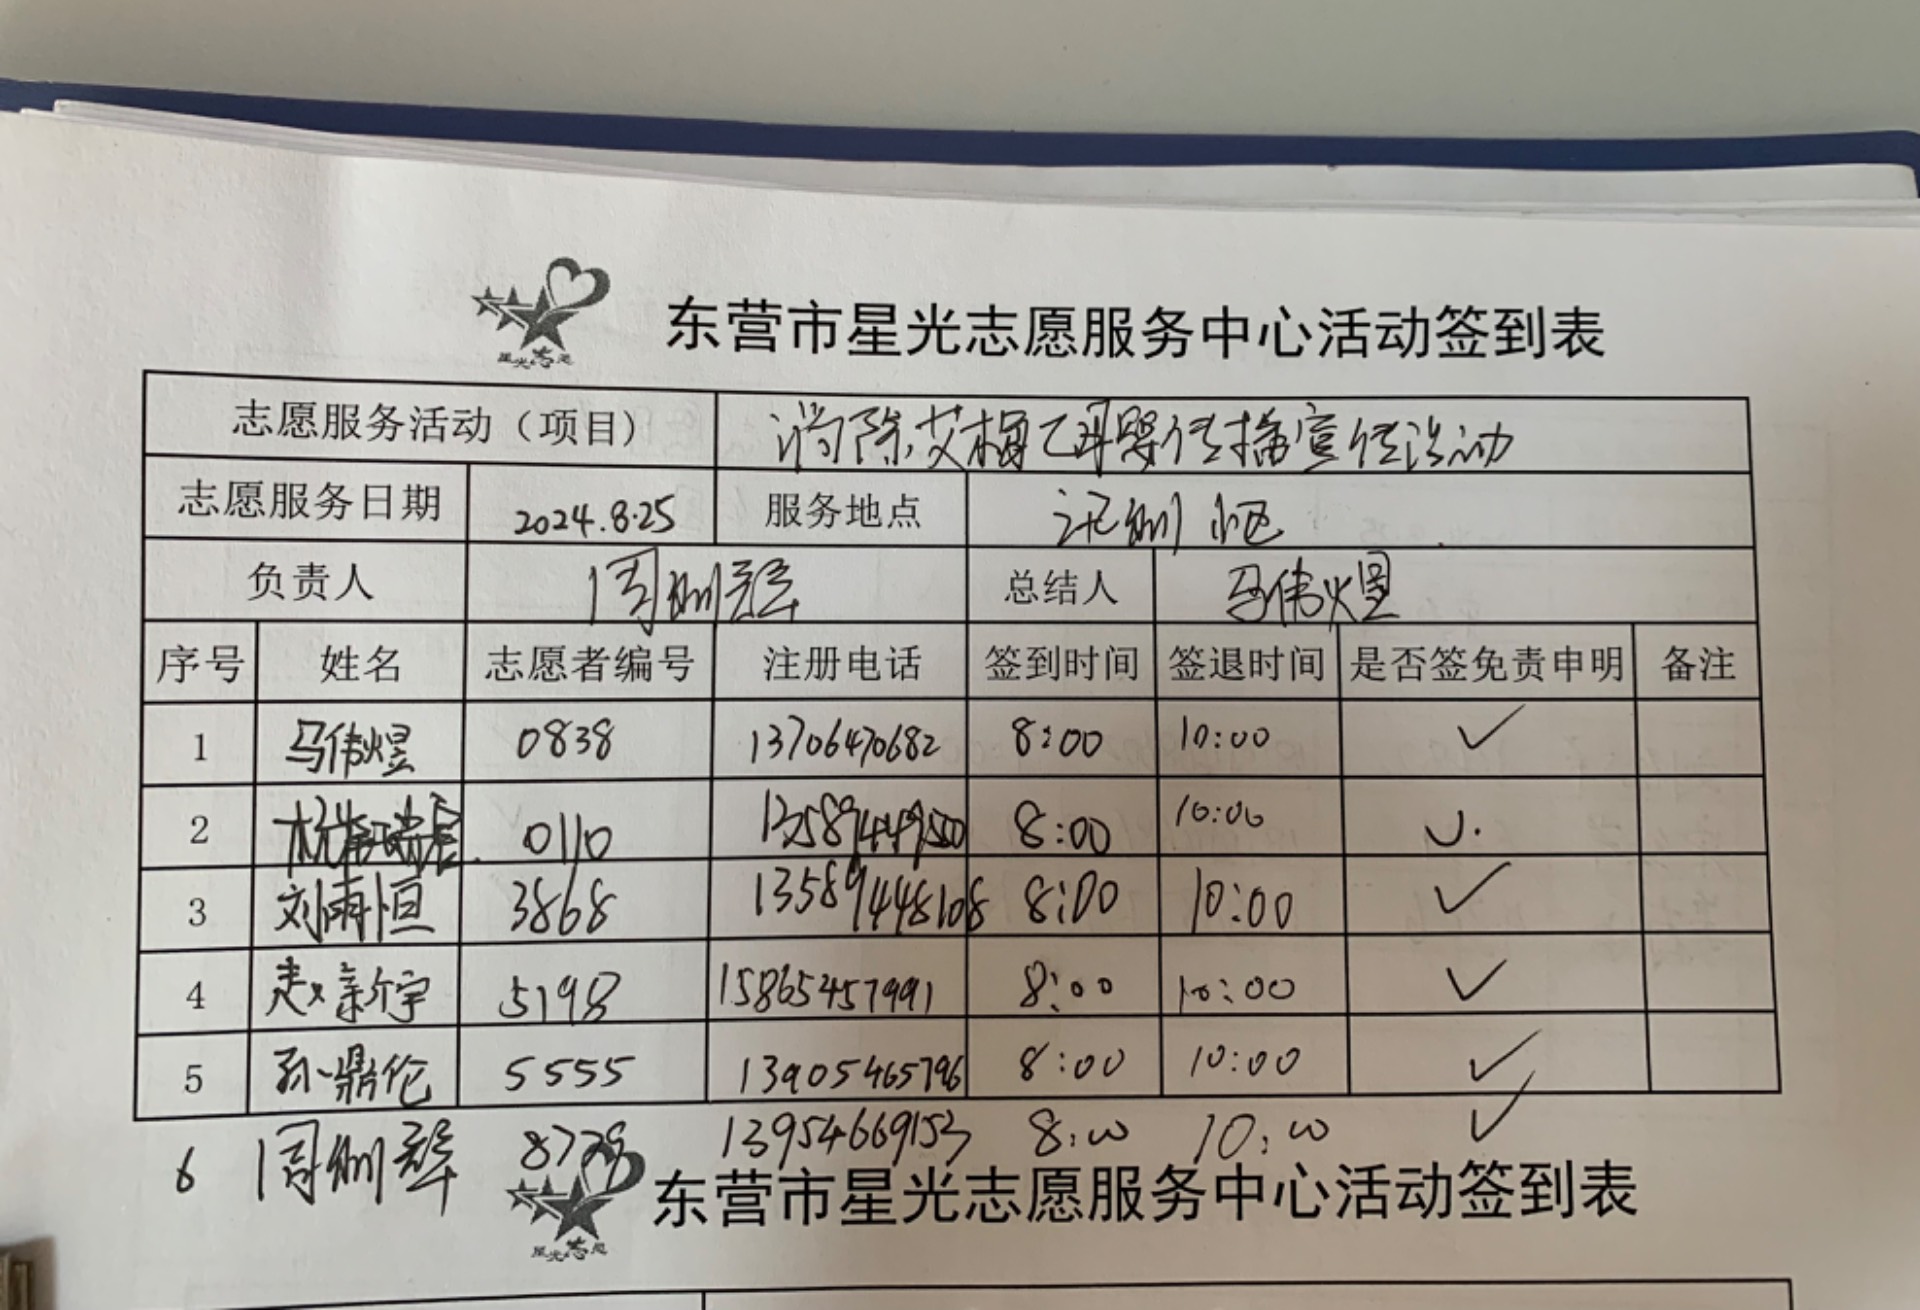 星光志愿
东营市星光志愿服务中心活动签到表
志愿服务活动（项目） 消除艾梅乙母婴传播宣传活动
志愿服务日期 2024.8.25 服务地点 小区
负责人 周 总结人 马伟煜
序号 姓名 志愿者编号 注册电话 签到时间 签退时间 是否签免责申明 备注
1 马伟煜 0838 13706470682 8:00 10:00 ✓
2 0110 13589449500 8:00 10:00 ✓
3 刘雨恒 3868 13589448108 8:00 10:00 ✓
4 赵新宇 5198 15865457991 8:00 10:00 ✓
5 孙鼎伦 5555 13905465796 8:00 10:00 ✓
6 周 8779 13954669153 8:00 10:00 ✓
东营市星光志愿服务中心活动签到表
星光志愿